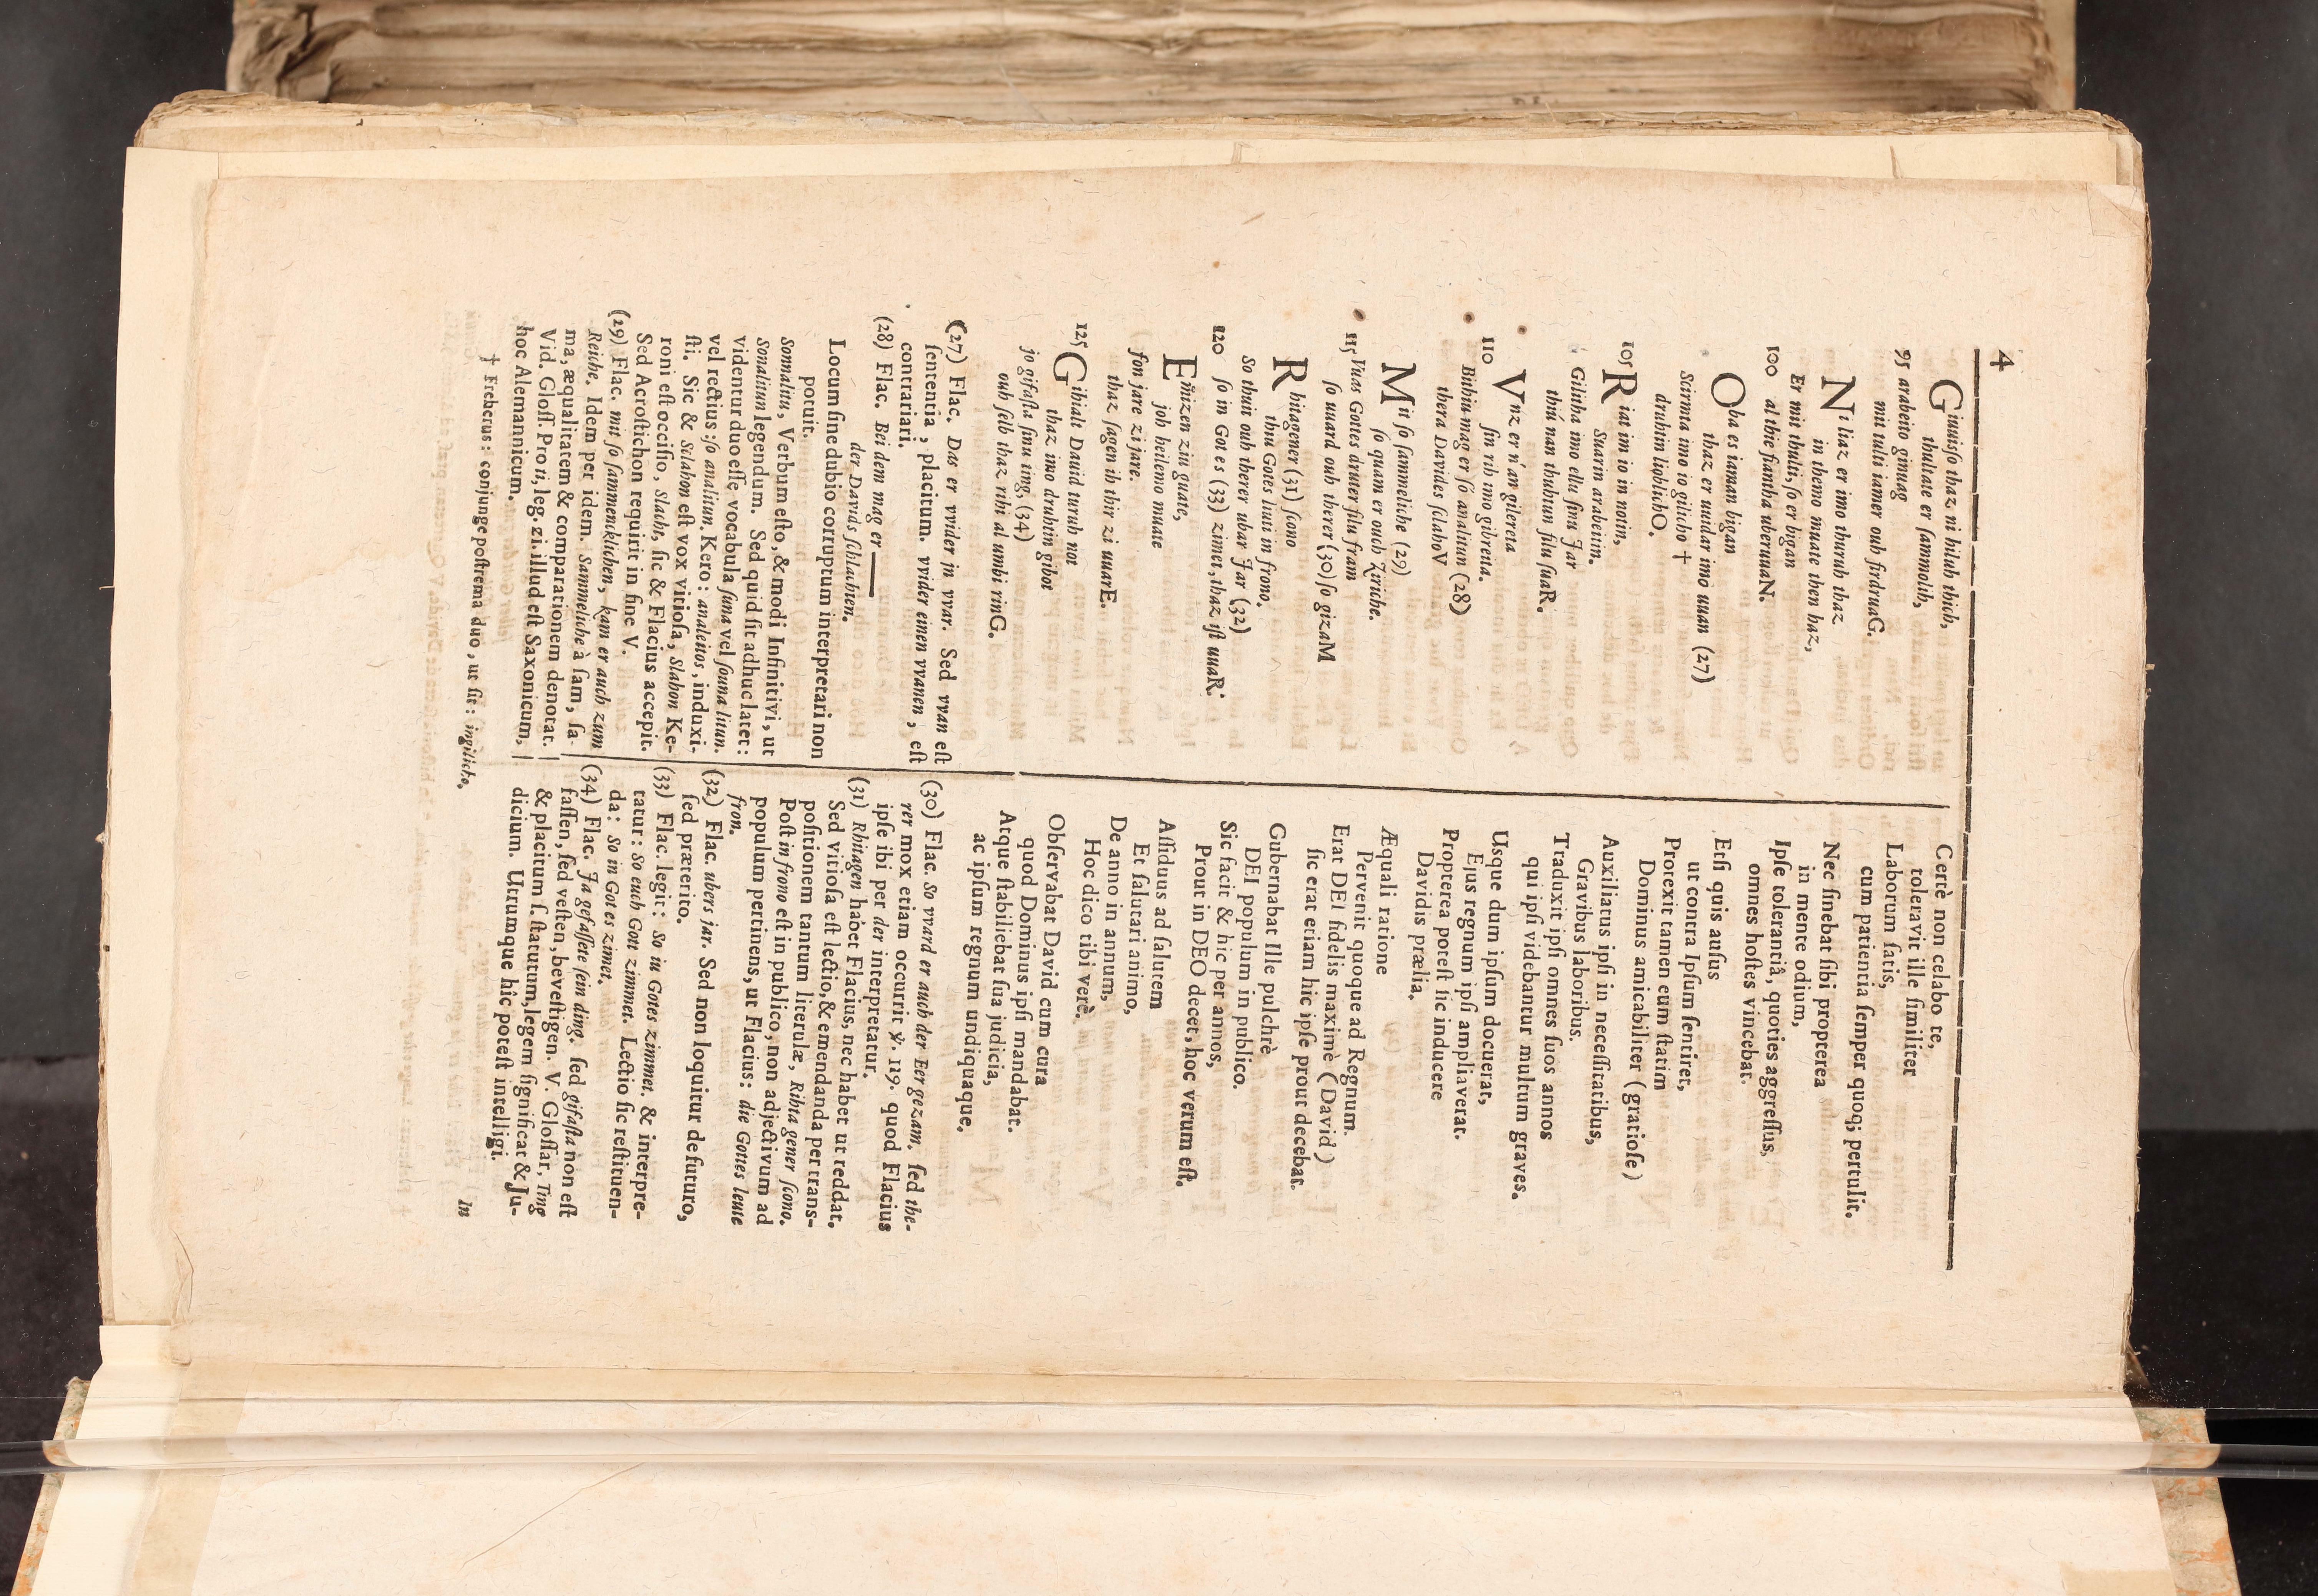 4
Giuuisso thaz ni hiluh thich,
thultate er sammolih,
95 arabeito ginuag
mit tulti iamer ouh firdruaG.
Ni liaz er imo thuruh thaz
in themo muate then haz,
Er mit thulti, so er bigan
100 al thie fiantha uberuuaN.
Oba es iaman bigan
thaz er uuidar imo uuan (27)
Scirmta imo io gilicho †
druhtin lioblichO.
105 Riat im io in notin,
Suarin arabeitin.
Gilitha imo ellu sinu Jar
thiu nan thuhtun filu suaR.
Vnz er n'an gilereta
110 sin rih imo gibreita.
Bithiu mag er só analitun (28)
thera Davides slahoV
Mit so sammeliche (29)
so quam er ouch Ziriche.
115 Vuas Gottes druter filu fram
so uuard ouh therer (30) so gizaM
Rhitagener (31) scono
thiu Gotes liuti in frono.
So thuit ouh therer ubar Jar (32)
120 so in Got es (33) zimet, thaz ist uuaR.
Em̃izen ziu guate,
joh heilemo muate
fon jare zi jare.
thaz sagen ih thir zi uuarE.
125 Gihialt Dauid turuh not
thaz imo druhtin gibot
jo gifasta sinu ting, (34)
ouh selb thaz rihi al umbi rinG.
Certè non celabo te,
toleravit ille similiter
Laborum satis,
cum patientia semper quoq; pertulit.
Nec sinebat sibi propterea
in mente odium,
Ipse tolerantiâ, quoties aggressus,
omnes hostes vincebat.
Etsi quis ausus
ut contra Ipsum sentiret,
Protexit tamen eum statim
Dominus amicabiliter (gratiose)
Auxiliatus ipsi in necessitatibus,
Gravibus laboribus.
Traduxit ipsi omnes suos annos
qui ipsi videbantur multum graves.
Usque dum ipsum docuerat,
Ejus regnum ipsi ampliaverat.
Propterea potest sic inducere
Davidis prælia.
Æquali ratione
Pervenit quoque ad Regnum.
Erat DEI fidelis maximè (David)
sic erat etiam hic ipse prout decebat.
Gubernabat Ille pulchrè
DEI populum in publico.
Sic facit & hic per annos,
Prout in DEO decet, hoc verum est.
Assiduus ad salutem
Et salutari animo,
De anno in annum,
Hoc dico tibi verè.
Observabat David cum cura
quod Dominus ipsi mandabat.
Atque stabiliebat sua judicia,
ac ipsum regnum undiquaque.
(27) Flac. Das er vvider jn vvar. Sed vvan est
sententia, placitum. vvider einen vvanen, est
contrariari.
(28) Flac. Bei dem mag er ——
der Davids schlachten.
Locum sine dubio corruptum interpretari non
potuit.
Sonnalitu, Verbum esto, & modi Infinitivi, ut
Sonalitun legendum. Sed quid sit adhuc latet:
videntur duo esse vocabula suna vel souna litun.
vel rectius: so analitun. Kero: analeitos, induxi-
sti. Sic & Sclahon est vox vitiosa, Slahon Ke-
roni est occisio, Slacht, sic & Flacius accepit.
Sed Acrostichon requirit in fine V.
(29) Flac. mit so sammencklichen, kam er auch zum
Reiche. Idem per idem. Sammeliche à sam, sa-
ma, æqualitatem & comparationem denotat.
Vid. Gloss. Pro ti, leg. zi. illud est Saxonicum,
hoc Alemannicum.
† Freherus: conjunge postrema duo, ut sit: ingilicho.
(30) Flac. So vvard er auch der Eer gezam. sed the-
rer mox etiam occurrit ℣. 119. quod Flacius
ipse ibi per der interpretatur.
(31) Rhitagen habet Flacius, nec habet ut reddat.
Sed vitiosa est lectio, & emendanda per trans-
positionem tantum literulæ, Rihta gener scono.
Post in frono est in publico, non adjectivum ad
populum pertinens, ut Flacius: die Gottes leute
fron.
(32) Flac. ubers jar. Sed non loquitur de futuro,
sed præterito.
(33) Flac. legit: So iu Gotes zimmet. & interpre-
tatur: So euch Gott zimmet. Lectio sic restituen-
da: So in Got es zimet.
(34) Flac. Ja gefassete sein ding. sed gifasta non est
fassen, sed vesten, bevestigen. V. Glossar, Ting
& placitum s. statutum, legem significat & Ju-
dicium. Utrumque hîc potest intelligi.
In